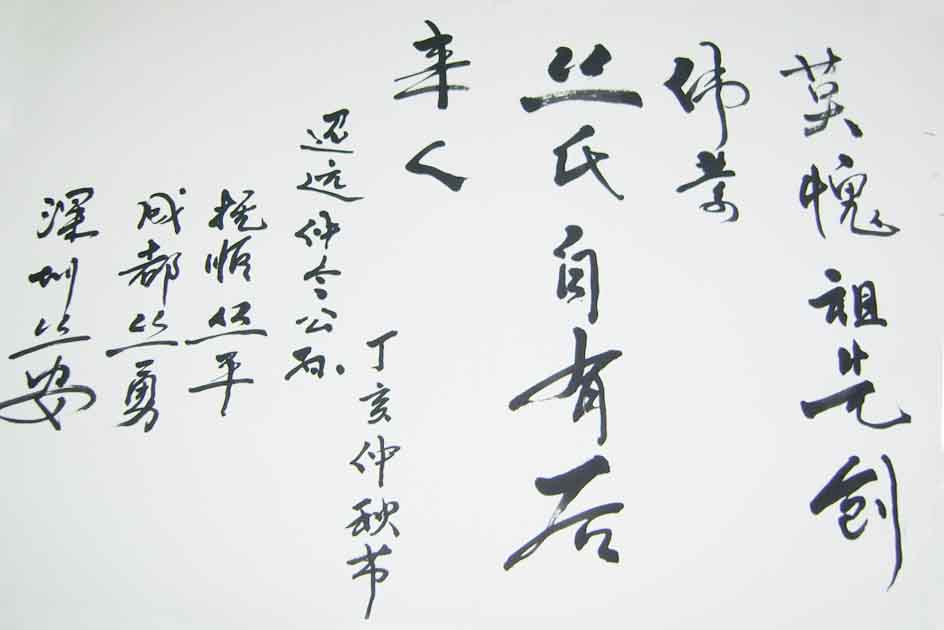 莫愧祖先创
伟業
丛氏自有后
来人
丁亥仲秋节
远仲令公
抚顺丛平
成都丛勇
深圳丛安